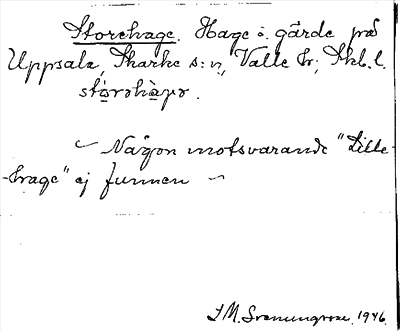 Storehage. Hage i gärde på
Uppsala, Skarke s:n, Valle hr, Skbl.
stórəhàgə.
~ Någon motsvarande "Lille-
-hage" ej funnen ~
1946